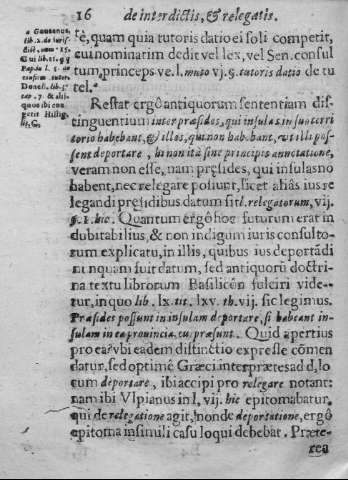 16 de interdictis, & relegatis.
a Goueanus,
lib. 2. de iuris-
dict. num. 15.
Cui lib. 16. q q
Pap. in l. 5. de
confirm. tutor.
Donell. lib. 5.
cap. 7. & alij
quos ibi con-
gerit Hillig.
lit. G.
se, quam quia tutoris datio ei soli competit,
cui nominatim dedit vel lex, vel Sen. consul
tum, princeps ve. l. muto vj. §. tutoris datio de tu
tel.
Restat ergô antiquorum sententiam dis-
tinguentium inter præsides, qui insulas in suo terri
torio habebant, & illos, qui non habebant, vt illi pos-
sent deportare, hi non ità sinè principis annotatione,
veram non esse, nam præsides, qui insulas nõ
habent, nec relegare possunt, licet aliâs ius re
legandi præsidibus datum sit l. relegatorum, vij.
§. 1. hic. Quantum ergô hoc futurum erat in
dubitabilius, & non indigum iuris consulto-
rum explicatu, in illis, quibus ius deportãdi
nunquam fuit datum, sed antiquorũ doctri-
na textu librorum Basilicôn fulciri vide-
tur, in quo lib. lx. tit. lxv. th. vij. sic legimus.
Præsides possunt in insulam deportare, si habeant in-
sulam in ea prouincia cui præsunt. Quid apertius
pro ea? vbi eadem distinctio expresse cõmen
datur, sed optimè Græci interpraetes ad d, lo
cum deportare, ibi accipi pro relegare notant:
nam ibi Vlpianus in l, vij. hic epitomabatur,
qui de relegatione agit, non de deportatione, ergô
epitoma in simili casu loqui debebat. Præte-
rea